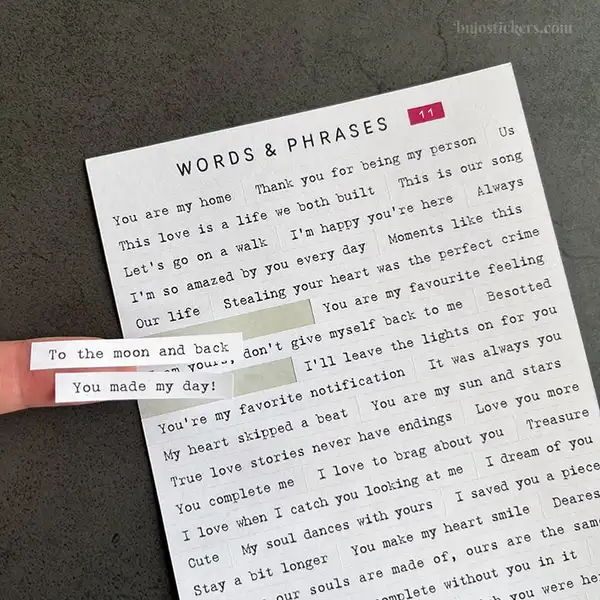 bujostickers.com
WORDS & PHRASES 11
You are my home Thank you for being my person Us
This love is a life we both built This is our song
Let's go on a walk I'm happy you're here Always
I'm so amazed by you every day Moments like this
Our life Stealing your heart was the perfect crime
You are my favourite feeling
To the moon and back
yours, don't give myself back to me Besotted
You made my day!
I'll leave the lights on for you
You're my favorite notification It was always you
My heart skipped a beat You are my sun and stars
True love stories never have endings Love you more
You complete me I love to brag about you Treasure
I love when I catch you looking at me I dream of you
Cute My soul dances with yours I saved you a piece
Stay a bit longer You make my heart smile Deares
our souls are made of, ours are the same
complete without you in it
you were her